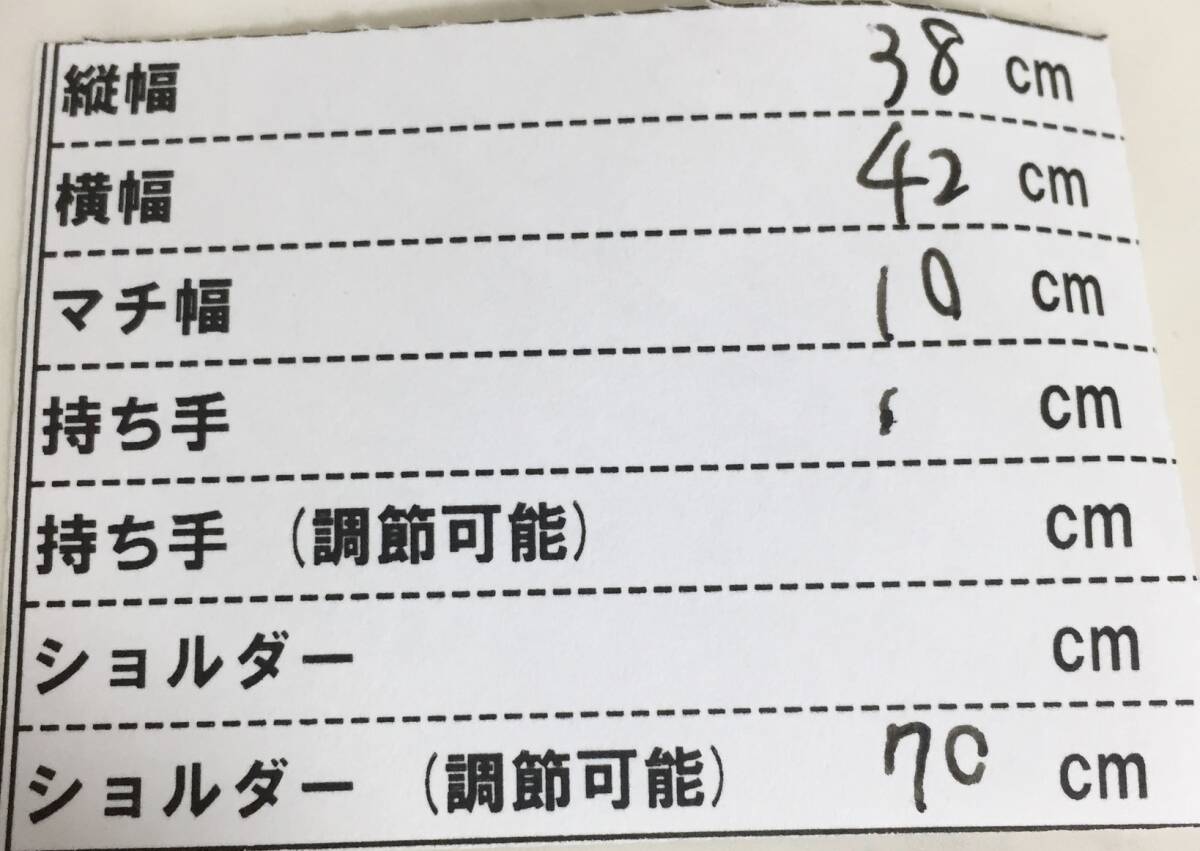 縦幅 38 cm
横幅 42 cm
マチ幅 10 cm
持ち手 cm
持ち手 (調節可能) cm
ショルダー cm
ショルダー (調節可能) 70 cm